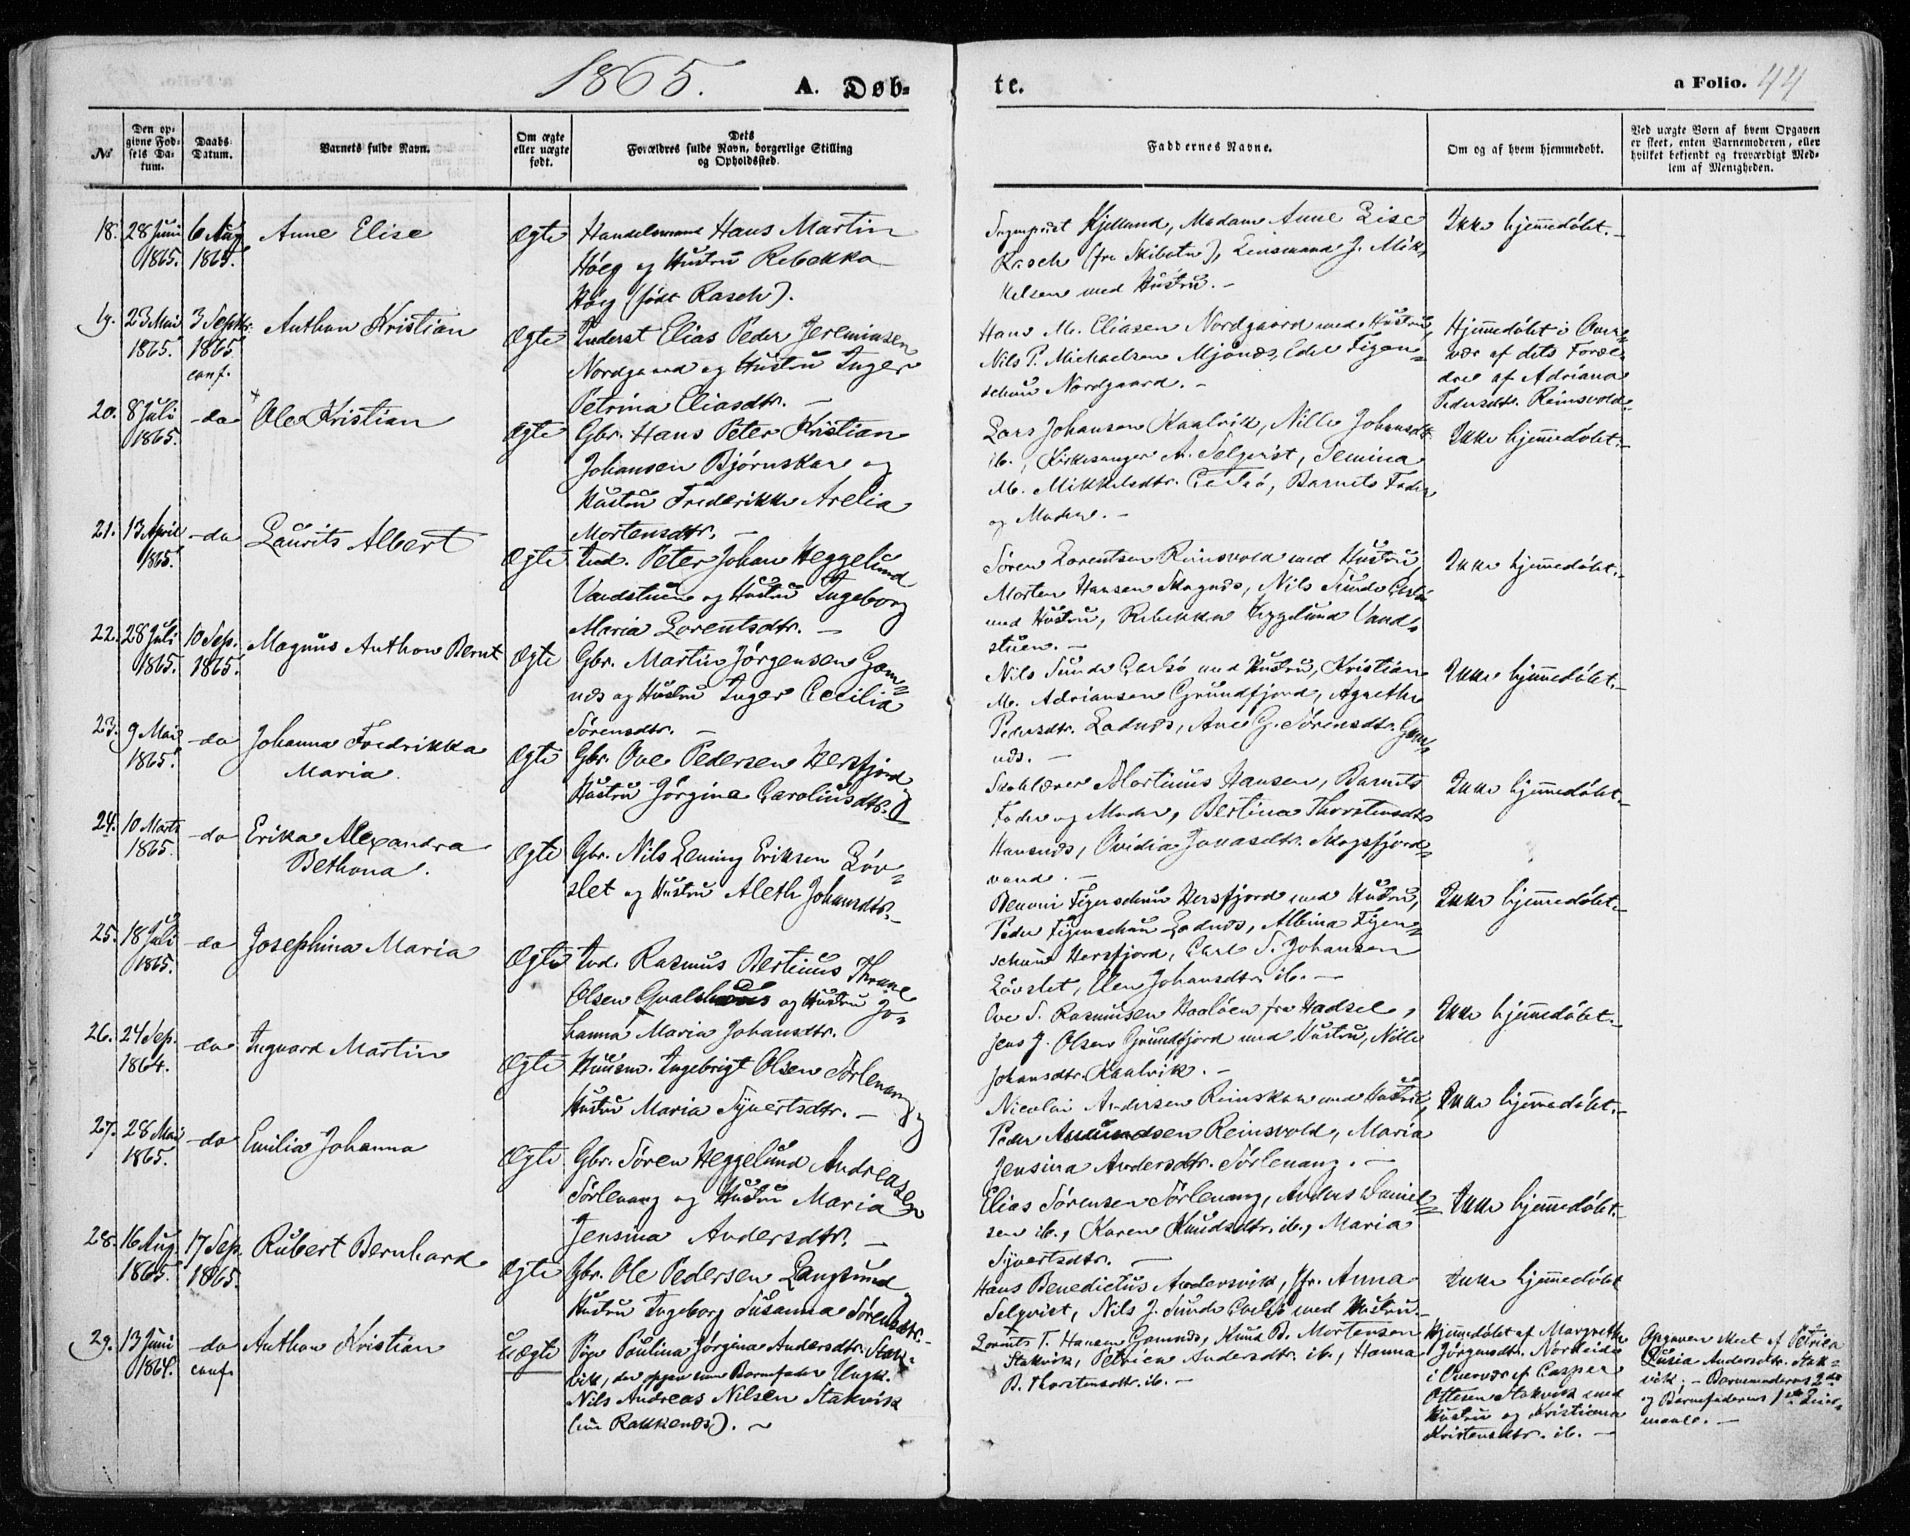 1865. A. Døb- te. a Folio. 44
No
Den opgivne Fødsels Datum.
Daabs Datum.
Barnets fulde Navn.
Om ægte eller uægte født.
Dets Forældres fulde Navn, borgerlige Stilling og Opholdssted.
Faddernes Navne.
Om og af hvem hjemmedøbt.
Ved uægte Børn af hvem Opgaven er skeet, enten Barnemoderen, eller hvilket bekjendt og troværdigt Medlem af Menigheden.
18. 28 Juni 1865. 6 Aug. 1865. Anne Elise Ægte
Handelsmand Hans Martin
Høeg og Hustru Rebekka
Høeg (født Rasch).
Sognepræst Kjelland, Madam Anne Lise
Rasch (fra Skibotn), Lensmand J. Mik-
kelsen med Hustru. -
Ikke hjemmedøbt. -
19. 23 Mai 1865. 3 Septbr. 1865. conf. Anthon Kristian Ægte
Inderst Elias Peder Jeremiasen
Nordgaard og Hustru Inger
Petrina Eliasdtr. -
Hans M. Eliasen Nordgaard med Hustru,
Nils P. Michaelsen Mjønes, Edel Figen-
schou Nordgaard. -
Hjemmedøbt i Over-
vær af dets Foræl-
dre af Adriana
Pedersdtr. Reinsvold.
20. 8 Juli 1865. - do Ole Kristian Ægte
Gbr. Hans Peter Kristian
Johansen Bjørnskar og
Hustru Frederikke Arelia
Mortensdtr. -
Lars Johansen Kaalvik, Nille Johansdtr
ib., Kirkesanger A. Selqvist, Semina
M. Mikkelsdtr. Carlsø, Barnets Fader
og Moder. -
Ikke hjemmedøbt. -
21. 13 April 1865. - do Laurits Albert Ægte
Ind. Peter Johan Heggelund
Vandstuen og Hustru Ingeborg
Maria Lorentsdtr. -
Søren Lorentsen Reinsvold med Hustru
Morten Hansen Skognæs, Nils Sunde Carlsø
med Hustru, Rebekka Heggelund Vand-
stuen. -
Ikke hjemmedøbt. -
22. 28 Juli 1865. 10 Sep. 1865. Magnus Anthon Bernt Ægte
Gbr. Martin Jørgensen Gam-
næs og Hustru Inger Cecilia
Sørensdtr. -
Nils Sunde Carlsø med Hustru, Kristian
M. Adriansen Grundfjord, Agnethe
Pedersdtr. Ladnæs, Ane G. Sørensdtr. Gam-
næs. -
Ikke hjemmedøbt. -
23. 9 Mai 1865. - do Johanna Fredrikka
Maria. Ægte
Gbr. Ove Pedersen Hersfjord og
Hustru Jørgina Caroliusdtr.
Skolelærer Martinus Hansen, Barnets
Fader og Moder, Bertina Thorstensdtr
Hansnæs, Ovidia Jonasdtr. Skogsfjord-
vand. -
Ikke hjemmedøbt. -
24. 10 Marts 1865. - do Erika Alexandra
Bethona. Ægte
Gbr. Nils Leming Eriksen Løv-
slet og Hustru Aleth Johansdtr. -
Benoni Figenschou Hersfjord med Hustru,
Peder Figenschou Ladnæs, Albina Figen-
schou Hersfjord, Carl S. Johansen
Løvslet, Elen Johansdtr. ib. -
Ikke hjemmedøbt. -
25. 18 Juli 1865. - do Josephina Maria Ægte
Ind. Rasmus Bertinus Thrane
Olsen og Hustru Jo-
hanna Maria Johansdtr.
Ove S. Rasmussen fra Hadsel,
Jens J. Olsen Grundfjord med Hustru, Nille
Johansdtr. Kaalvik. -
Ikke hjemmedøbt. -
26. 24 Sep. 1864. - do Ingvard Martin Ægte
Huusm. Ingebrigt Olsen Sørlenang og
Hustru Maria Syvertsdtr. -
Nicolai Andersen Reinskar med Hustru,
Peder Amundsen Reinsvold, Maria
Jensina Andersdtr. Sørlenang. -
Ikke hjemmedøbt. -
27. 28 Mai 1865. - do Emilia Johanna Ægte
Gbr. Søren Heggelund Andreasen
Sørlenang og Hustru Maria
Jensina Andersdtr. -
Elias Sørensen Sørlenang, Anders Daniel-
sen ib., Karen Knudsdtr. ib., Maria
Syvertsdtr. -
Ikke hjemmedøbt. -
28. 16 Aug. 1865. 17 Sep. 1865. Rubert Bernhard Ægte
Gbr. Ole Pedersen Langsund og
Hustru Ingeborg Susanna Sørensdtr. -
Hans Benedictus Andersvik, Jfr. Anna
Selqvist, Nils J. Sunde Carlsø med Hustru. -
Ikke hjemmedøbt
29. 13 Juni 1864. - do conf. Anthon Kristian Uægte
Pige Paulina Jørgina Andersdtr. Stak-
vik, der opgav som Barnefader Ungk.
Nils Andreas Nilsen Stakvik
(nu Rakkenæs). -
Lorents T. Hansen Gamnæs, Knud B. Mortensen
Stakvik, Petrica Andersdtr. ib., Hanna
B. Thorstensdtr. ib. -
Hjemmedøbt af Margrethe
Jørgensdtr. Nordeide
i Overvær af Casper
Ottesen Stakvik med
Hustru og Kristianna
Kristensdtr. ib. -
Opgaven skeet af Petrica
Lusia Andersdtr. Stak-
vik. - Barnemoderens 2det
og Barnefaderens 1ste Leier-
maal. -